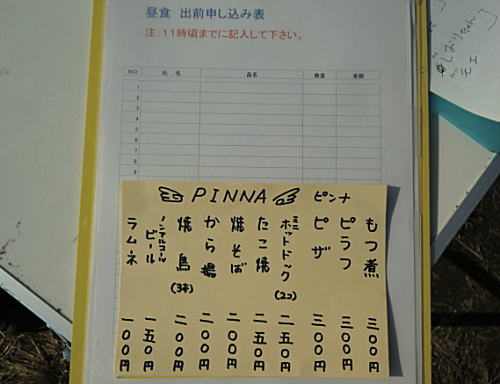 昼食 出前申し込み表
注:11時頃までに記入して下さい。
NO 氏 名 品名 数量 金額
1
2
3
4
5
6
7
8
9
PINNA ピンナ
もつ煮 三〇〇円
ピラフ 三〇〇円
ピザ 三〇〇円
ミニホットドック(2コ) 二五〇円
たこ焼 二五〇円
焼そば 二〇〇円
から揚 二〇〇円
焼鳥(3本) 二〇〇円
ノンアルコールビール 一五〇円
ラムネ 一〇〇円